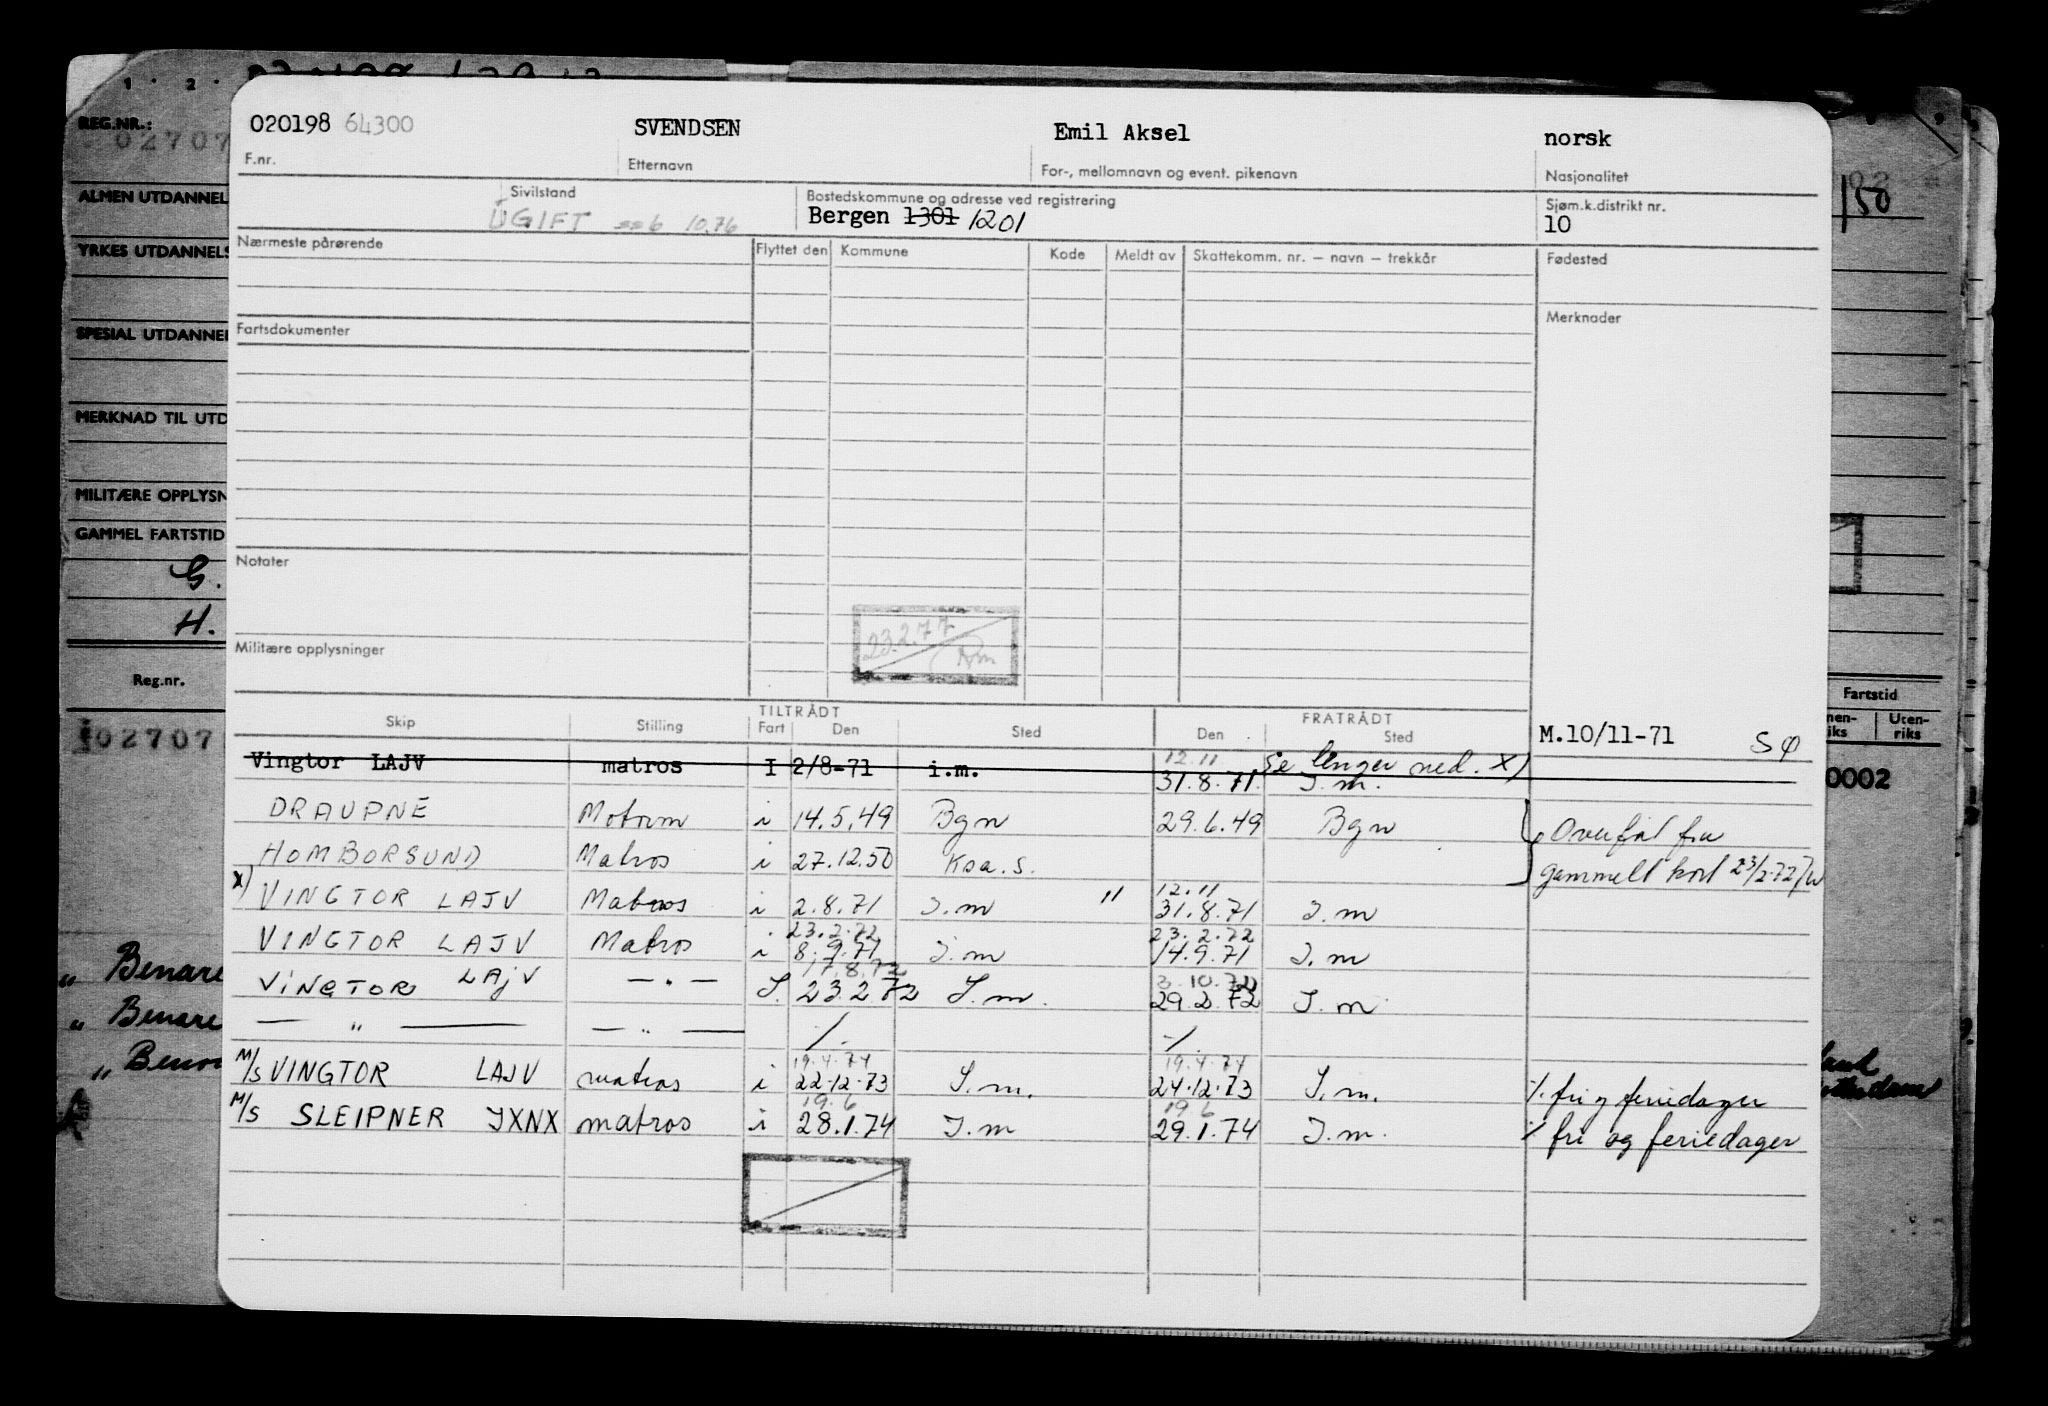 020198 64300 SVENDSEN Emil Aksel norsk
F.nr. Etternavn For-, mellomnavn og event. pikenavn Nasjonalitet
Sivilstand Bostedskommune og adresse ved registrering Sjøm.k.distrikt nr.
UGIFT 10.76 Bergen 1301 1201 10
Nærmeste pårørende Flyttet den Kommune Kode Meldt av Skattekomm. nr. – navn – trekkår Fødested
Fartsdokumenter Merknader
Notater
23.2.77
Militære opplysninger
TILTRÅDT FRATRÅDT
Skip Stilling Fart Den Sted Den Sted M.10/11-71 SØ
12.11 Se lenger ned. X)
Vingtor LAJV matros I 2/8-71 i.m. 31.8.71 I.m.
DRAUPNE Motorm i 14.5.49 Bgn 29.6.49 Bgn Overført fra
HOMBORSUND Matros i 27.12.50 Ksa.S. gammelt kort 23/2-72
12.11
X) VINGTOR LAJV Matros i 2.8.71 I.m " 31.8.71 I.m
23.2.72 23.2.72
VINGTOR LAJV Matros i 8.9.71 I.m 14.9.71 I.m
17.8.72 3.10.72
VINGTOR LAJV — " — I. 23.2.72 I.m. 29.2.72 I.m
— " — — " — ./. ./.
19.4.74 19.4.74
M/S VINGTOR LAJV matros i 22.12.73 I.m. 24.12.73 I.m. ./. fri og feriedager
19.6 19.6
M/S SLEIPNER JXNX matros i 28.1.74 I.m 29.1.74 I.m. ./. fri og feriedager
1 . 2 .
REG.NR.:
02707
ALMEN UTDANNEL
YRKES UTDANNELS
SPESIAL UTDANNEL
MERKNAD TIL UTD
MILITÆRE OPPLYSN
GAMMEL FARTSTID
G.
H.
Reg.nr.
02707
" Benare
" Benare
"
02
/50
Fartstid
nen-riks Uten-riks
0002